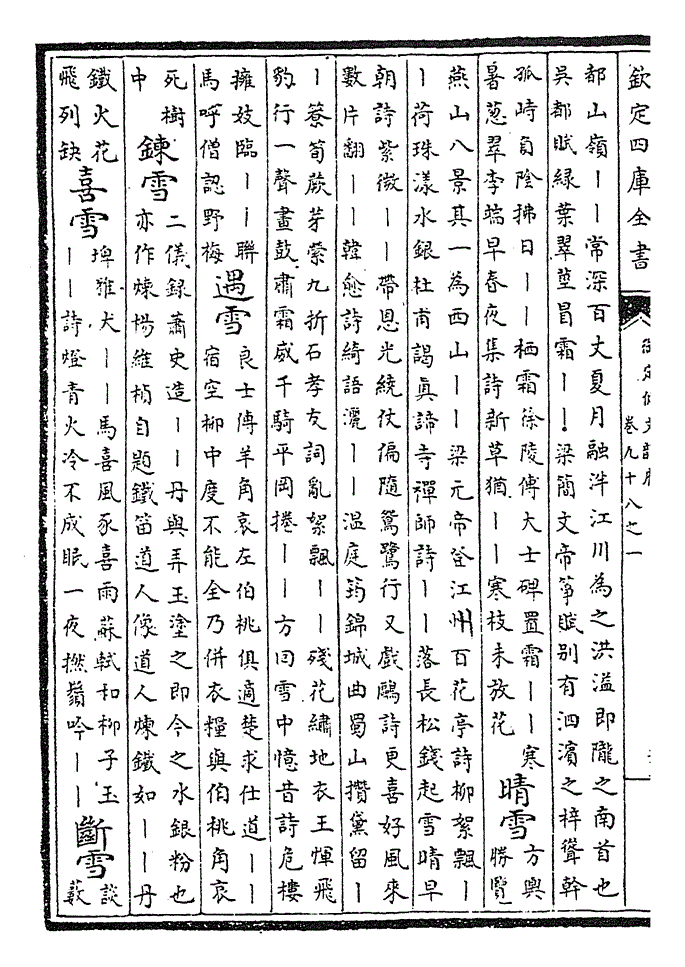 欽定四庫全書
卷九十八之一
都山嶺丨丨常深百丈夏月融泮江川為之洪溢即隴之南首也
吳都賦綠葉翠莖冒霜丨丨梁簡文帝箏賦别有泗濱之梓聳幹
孤峙負陰拂日丨丨栖霜徐陵傅大士碑置霜丨丨寒
暑葱翠李端早春夜集詩新草猶丨丨寒枝未放花
晴雪
方輿
勝覽
燕山八景其一為西山丨丨梁元帝登江州百花亭詩栁絮飄丨
丨荷珠漾水銀杜甫謁真諦寺禪師詩丨丨落長松錢起雪晴早
朝詩紫微丨丨帶恩光繞仗偏隨鴛鷺行又戲鷗詩更喜好風來
數片翻丨丨韓愈詩綺語灑丨丨温庭筠錦城曲蜀山攢黛留丨
丨簝筍蕨芽縈九折石孝友詞亂絮飄丨丨殘花繡地衣王惲飛
豹行一聲畫鼓肅霜威千騎平岡捲丨丨方回雪中憶昔詩危樓
擁妓臨丨丨聯
馬呼僧認野梅
遇雪
良士傳羊角哀左伯桃俱適楚求仕道丨丨
宿空柳中度不能全乃併衣糧與伯桃角哀
死樹
中
鍊雪
二儀録蕭史造丨丨丹與弄玉塗之即今之水銀粉也
亦作煉楊維楨自題鐵笛道人像道人煉鐵如丨丨丹
鐵火花
飛列缺
喜雪
埤雅犬丨丨馬喜風豕喜雨蘇軾和柳子玉
丨丨詩燈青火冷不成眠一夜撚鬚吟丨丨
斷雪
談
藪